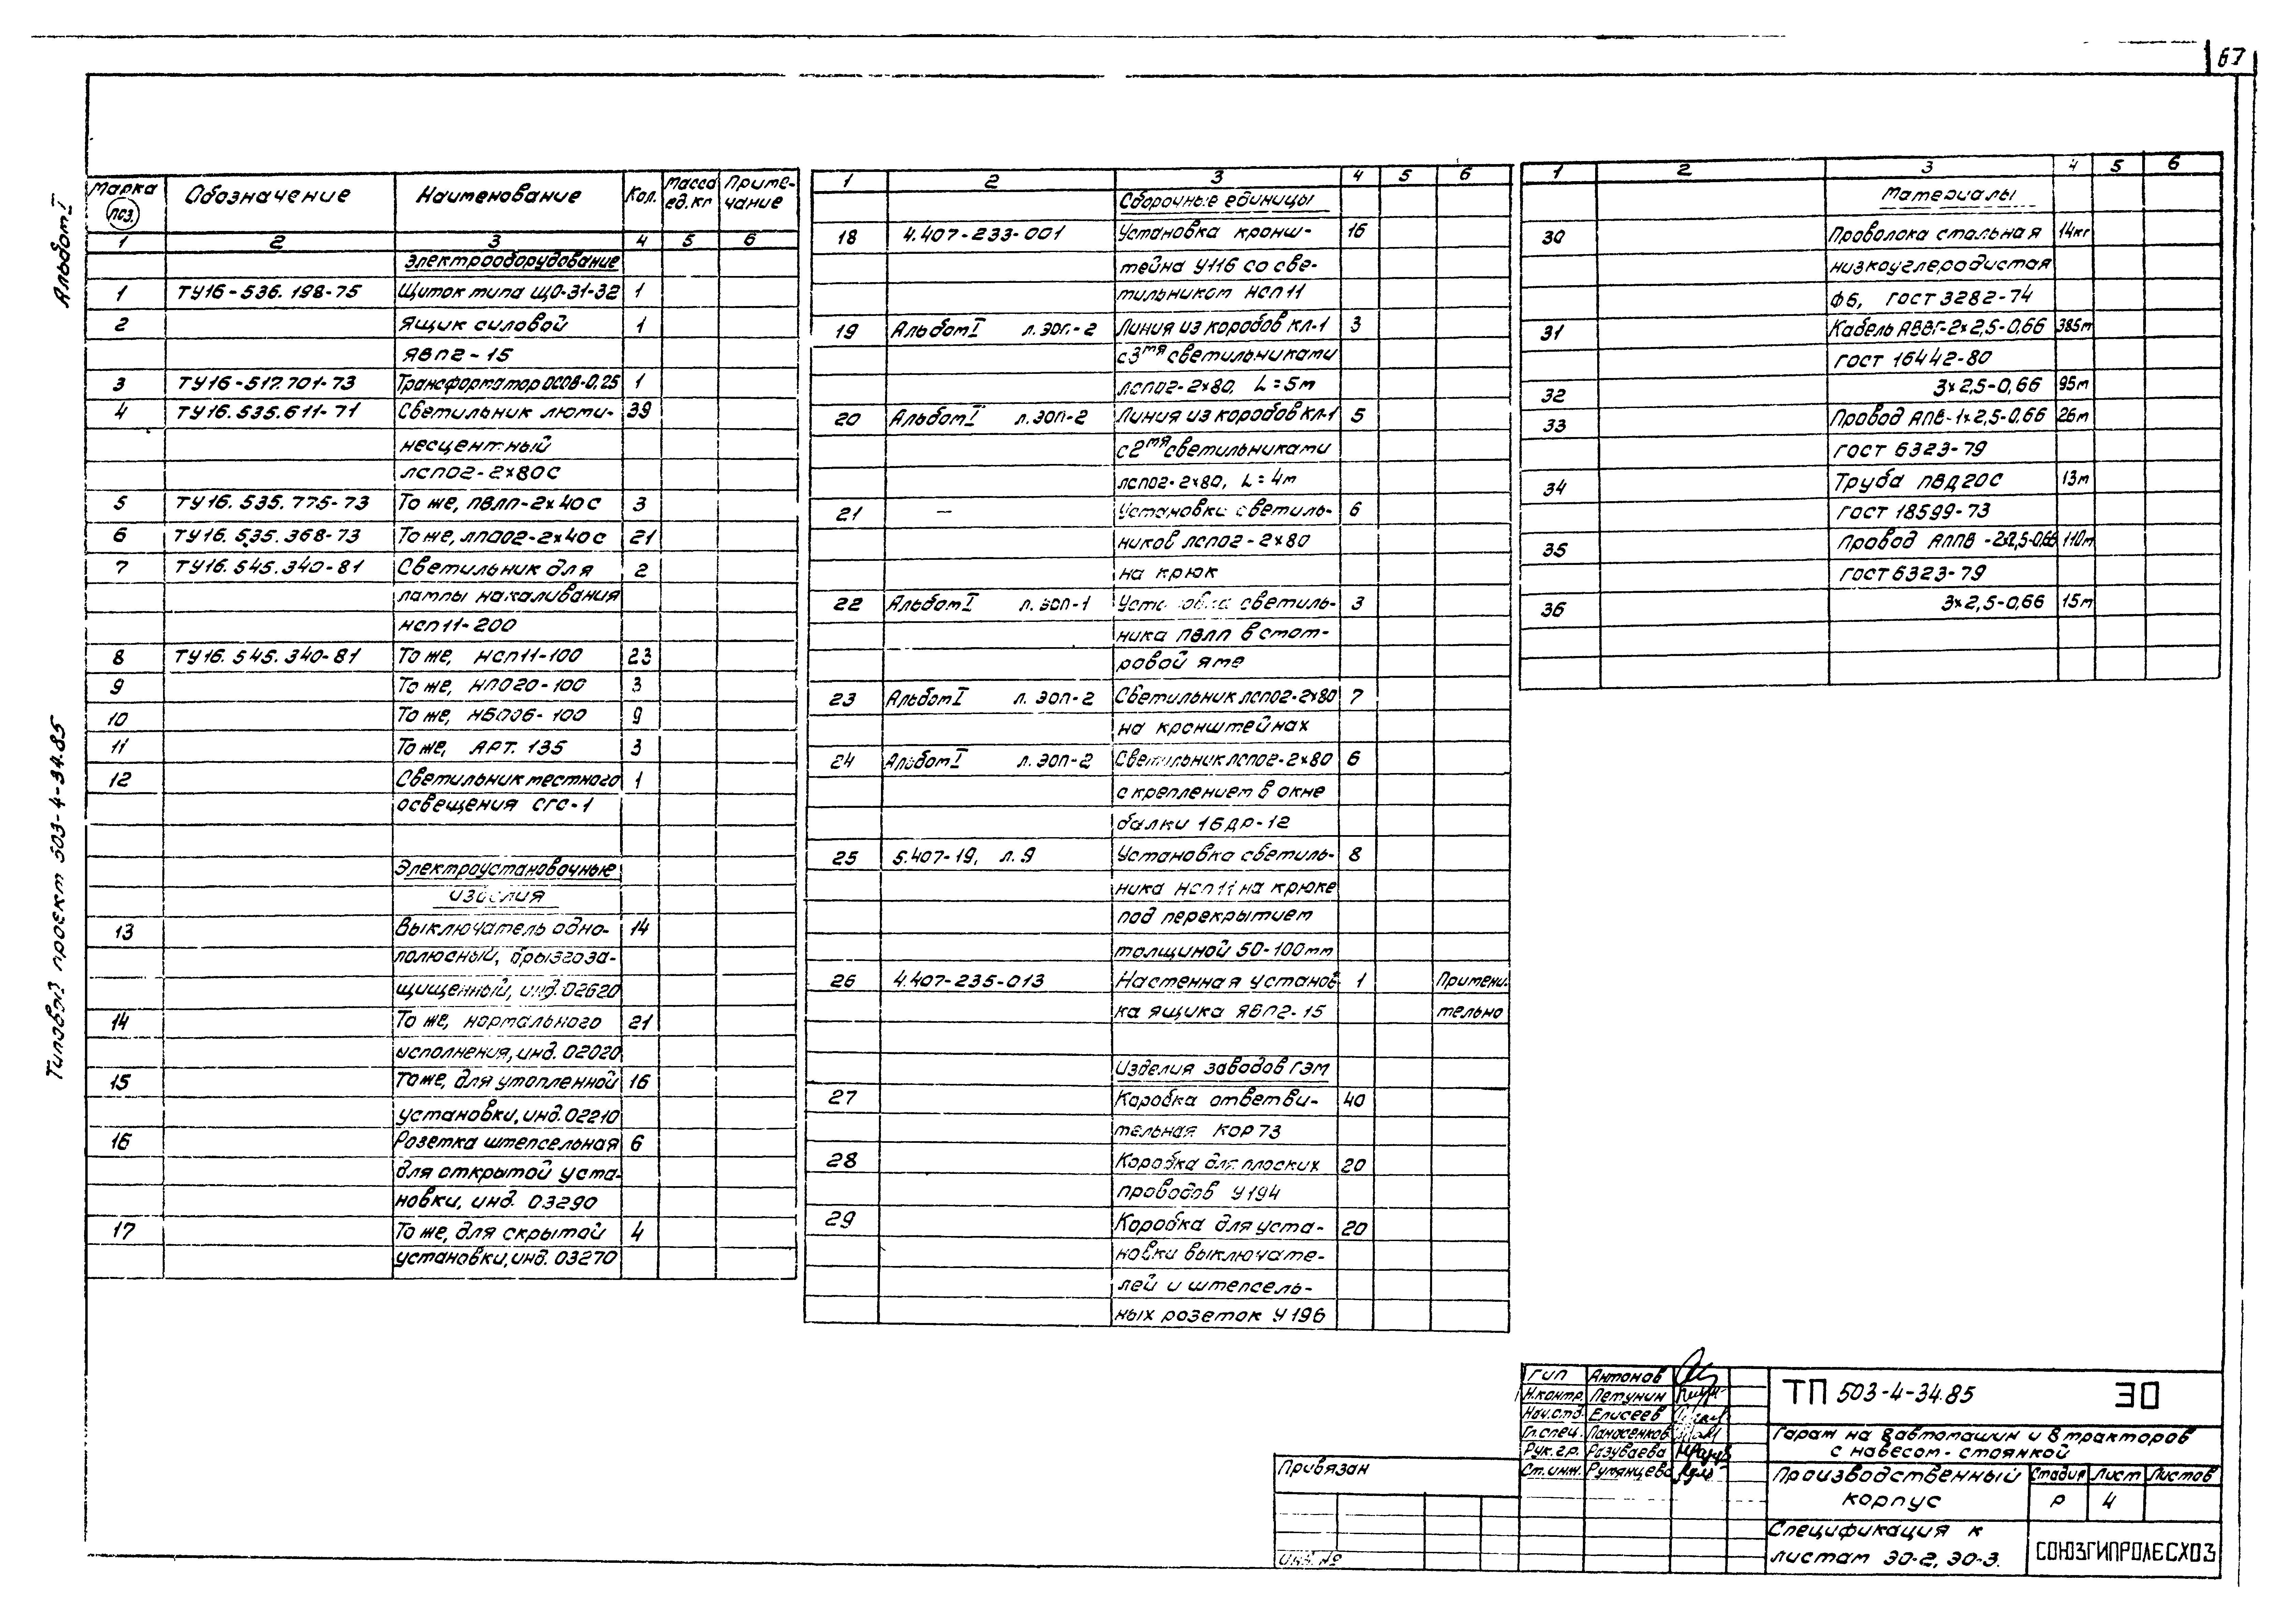 67
Альбом I
Типовой проект 503-4-34.85
Марка поз. Обозначение Наименование Кол. Масса ед.кг Приме-чание
1 2 3 4 5 6
Электрооборудование
1 ТУ16-536.198-75 Щиток типа ЩО-31-32 1
2 Ящик силовой 1
ЯВП2-15
3 ТУ16-517.701-73 Трансформатор ОСОВ-0,25 1
4 ТУ16.535.611-71 Светильник люми- 39
несцентный
ЛСПО2-2х80С
5 ТУ16.535.775-73 То же, ПВЛП-2х40С 3
6 ТУ16.535.368-73 То же, ЛПО02-2х40С 21
7 ТУ16.545.340-81 Светильник для 2
лампы накаливания
НСП11-200
8 ТУ16.545.340-81 То же, НСП11-100 23
9 То же, НПО20-100 3
10 То же, НБО06-100 9
11 То же, АРТ. 135 3
12 Светильник местного 1
освещения СГС-1
Электроустановочные
изделия
13 Выключатель одно- 14
полюсный, брызгоза-
щищенный, инд.02620
14 То же, нормального 21
исполнения, инд. 02020
15 То же, для утопленной 16
установки, инд.02210
16 Розетка штепсельная 6
для открытой уста-
новки, инд. 03290
17 То же, для скрытой 4
установки, инд. 03270
1 2 3 4 5 6
Сборочные единицы
18 4.407-233-001 Установка кронш- 16
тейна У116 со све-
тильником НСП11
19 Альбом I л. ЭОП-2 Линия из коробов КЛ-1 3
с 3мя светильниками
ЛСПО2-2х80, L=5м
20 Альбом I л. ЭОП-2 Линия из коробов КЛ-1 5
с 2мя светильниками
ЛСПО2-2х80, L=4м
21 – Установка светиль- 6
ников ЛСПО2-2х80
на крюк
22 Альбом I л. ЭОП-1 Установка светиль- 3
ника ПВЛП в смот-
ровой яме
23 Альбом I л. ЭОП-2 Светильник ЛСПО2-2х80 7
на кронштейнах
24 Альбом I л. ЭОП-2 Светильник ЛСПО2-2х80 6
с креплением в окне
балки 1бДР-12
25 5.407-19, л.9 Установка светиль- 8
ника НСП11 на крюке
под перекрытием
толщиной 50-100мм
26 4.407-235-013 Настенная установ- 1 Примени-
ка ящика ЯВП2-15 тельно
Изделия заводов ГЭМ
27 Коробка ответви- 40
тельная КОР73
28 Коробка для плоских 20
проводов У194
29 Коробка для уста- 20
новки выключате-
лей и штепсель-
ных розеток У196
1 2 3 4 5 6
Материалы
30 Проволока стальная 14кг
низкоуглеродистая
Ф6, ГОСТ 3282-74
31 Кабель АВВГ-2х2,5-0,66 385м
ГОСТ 16442-80
32 3х2,5-0,66 95м
33 Провод АПВ-1х2,5-0,66 26м
ГОСТ 6323-79
34 Труба ПВД20С 13м
ГОСТ 18599-73
35 Провод АППВ-2х2,5-0,66 110м
ГОСТ 6323-79
36 3х2,5-0,66 15м
Привязан
Инв. №
ГИП Антонов
Н.контр. Петунин
Нач.отд. Елисеев
Гл.спец. Панасенков
Рук.гр. Разуваева
Ст.инж. Румянцева
ТП 503-4-34.85 ЭО
Гараж на 8 автомашин и 8 тракторов
с навесом-стоянкой
Производственный корпус
Стадия Лист Листов
Р 4
Спецификация к
листам ЭО-2, ЭО-3.
СОЮЗГИПРОЛЕСХОЗ